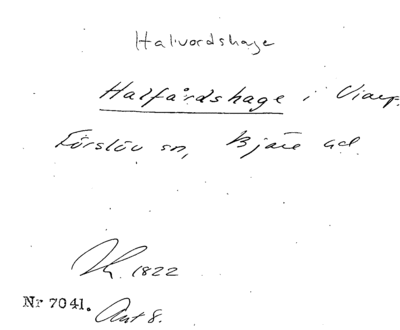 Halvordshage
Halfårdshage i Viarp.
Förslöv sn, Bjäre hd
Lk. 1822
Nr 7041. Akt 8.